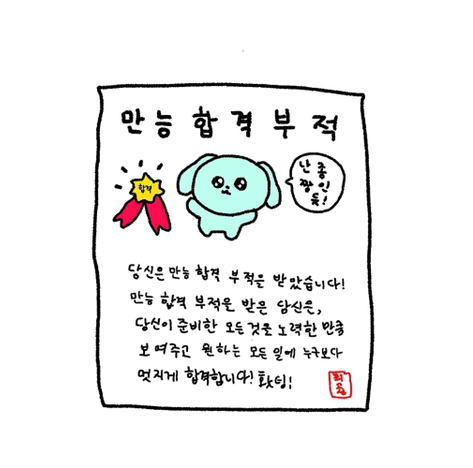 만능합격부적
합격
난 좀
짱인
듯!
당신은 만능 합격 부적을 받았습니다!
만능 합격 부적을 받은 당신은,
당신이 준비한 모든 것을 노력한 만큼
보여주고 원하는 모든 일에 누구보다
멋지게 합격합니다! 홧팅!